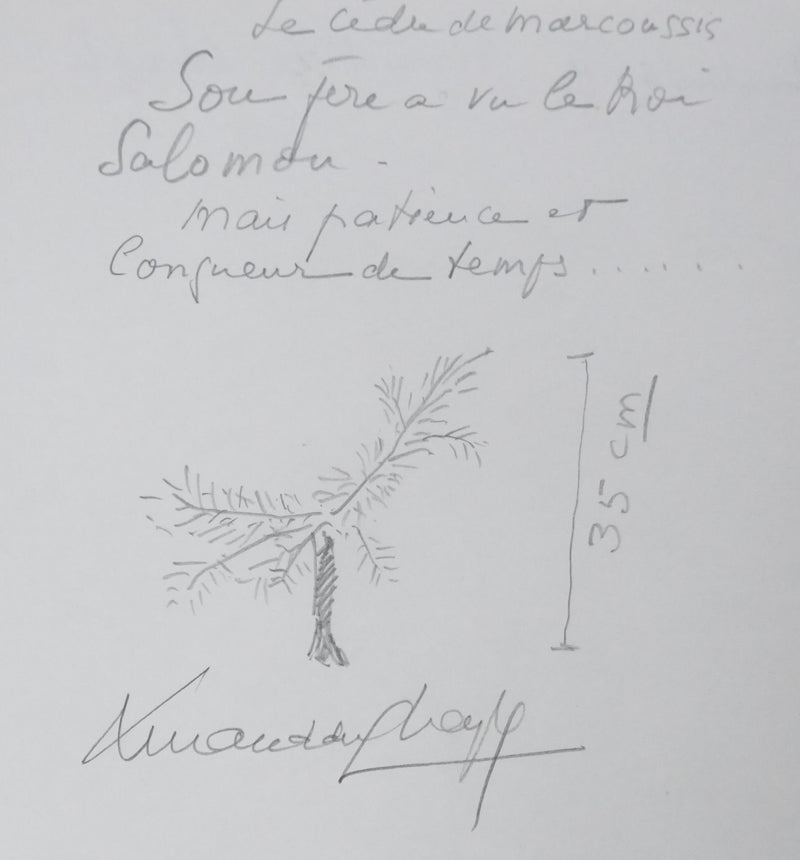 Le Cèdre de Marcoussis
Son père a vu le Roi
Salomon.
mais patience et
longueur de temps.......
35 cm